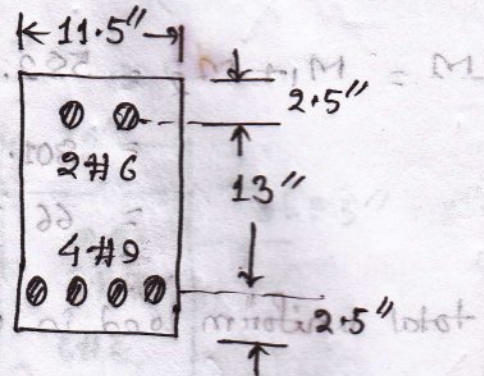 11.5"
2.5"
2#6
13"
4#9
2.5"